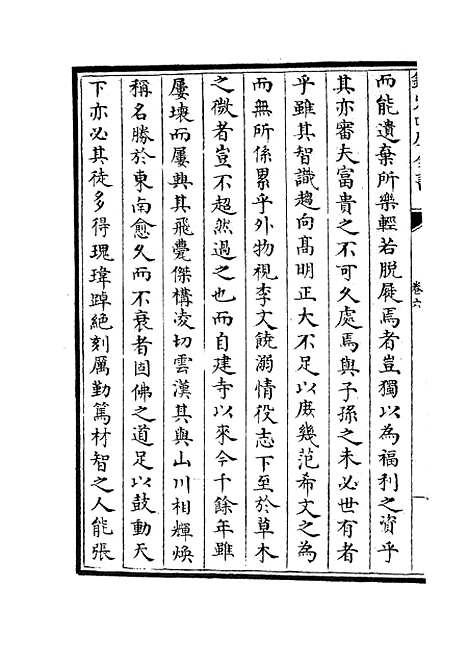 而能遺棄所樂輕若脫屣焉者豈獨以為福利之資乎
其亦審夫富貴之不可久處焉與子孫之未必世有者
乎雖其智識趨向髙明正大不足以庻幾范希文之為
而無所係累乎外物視李文饒溺情役志下至於草木
之微者豈不超然過之也而自建寺以來今千餘年雖
屢壞而屢興其飛甍傑構凌切雲漢其與山川相輝煥
稱名勝於東南愈久而不衰者固佛之道足以鼓動天
下亦必其徒多得瑰瑋踔絶刻厲勤篤材智之人能張
卷六